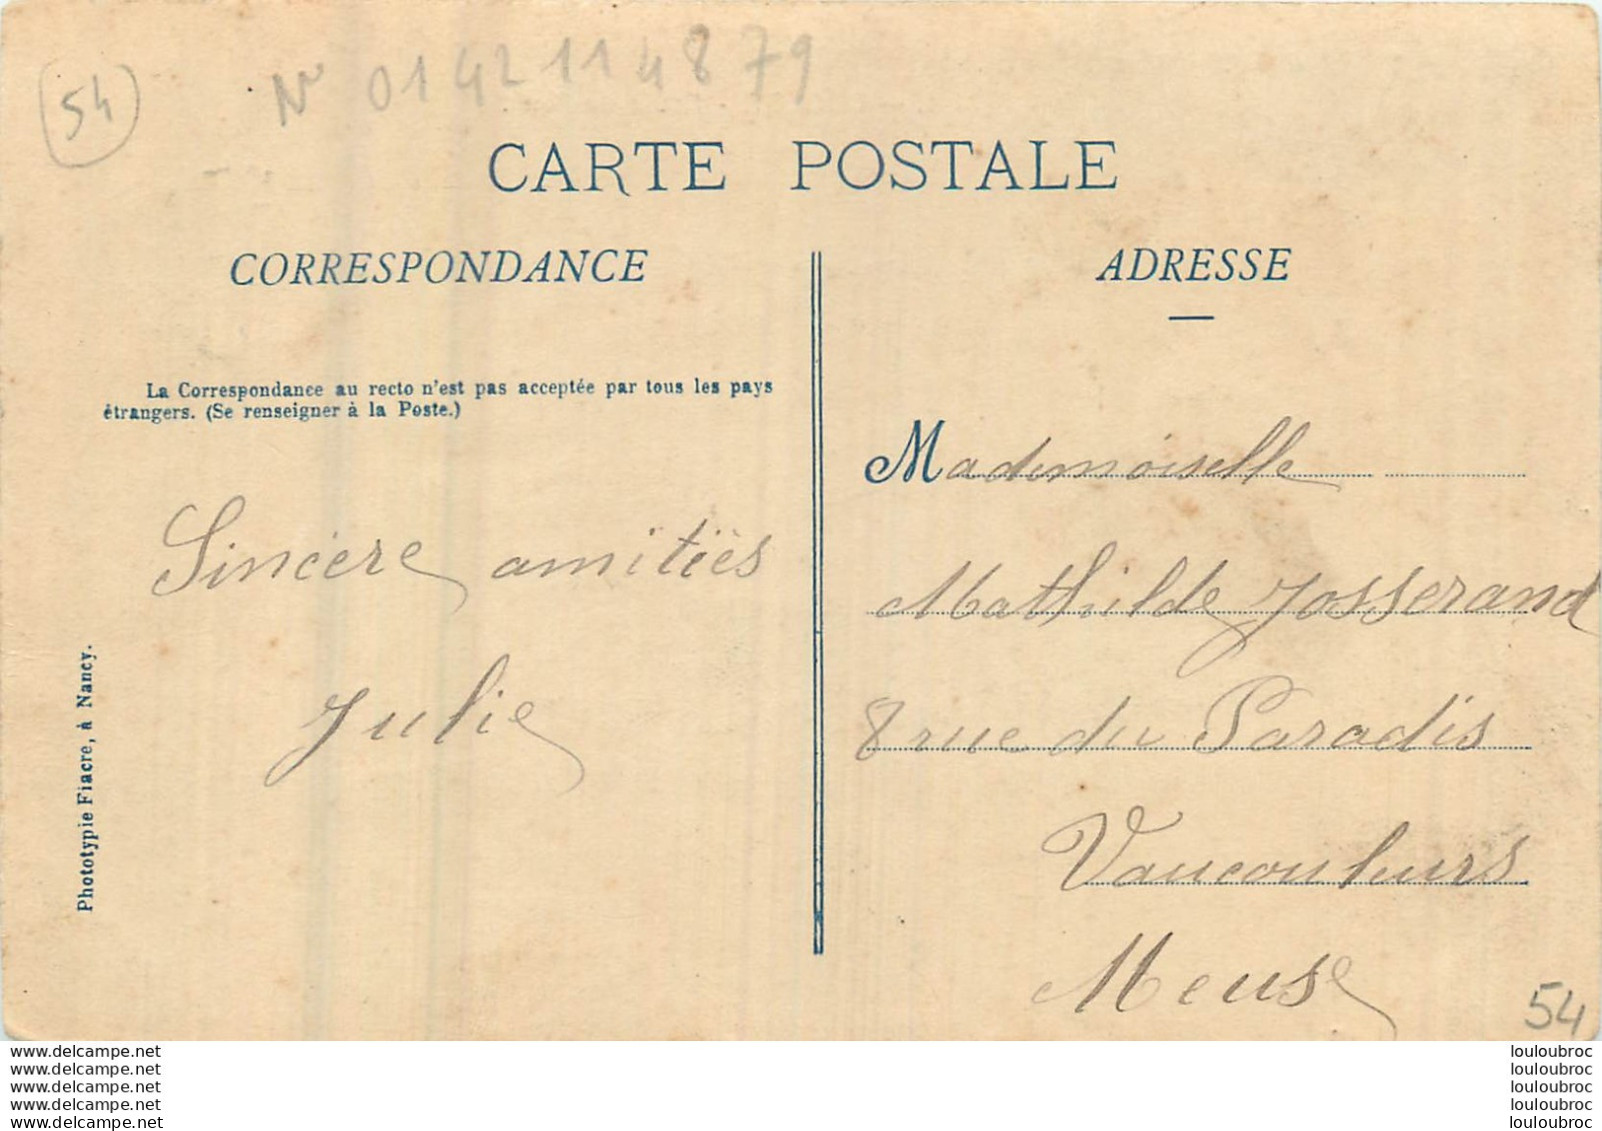 54
N° 01421148 79
CARTE POSTALE
CORRESPONDANCE
La Correspondance au recto n'est pas acceptée par tous les pays
étrangers. (Se renseigner à la Poste.)
Sincère amitiés
Julie
Phototypie Fiacre, à Nancy.
ADRESSE
Mademoiselle
Mathilde Josserand
8 rue du Paradis
Vaucouleurs
Meuse
54
www.delcampe.net
www.delcampe.net
www.delcampe.net
www.delcampe.net
www.delcampe.net
louloubroc
louloubroc
louloubroc
louloubroc
louloubroc